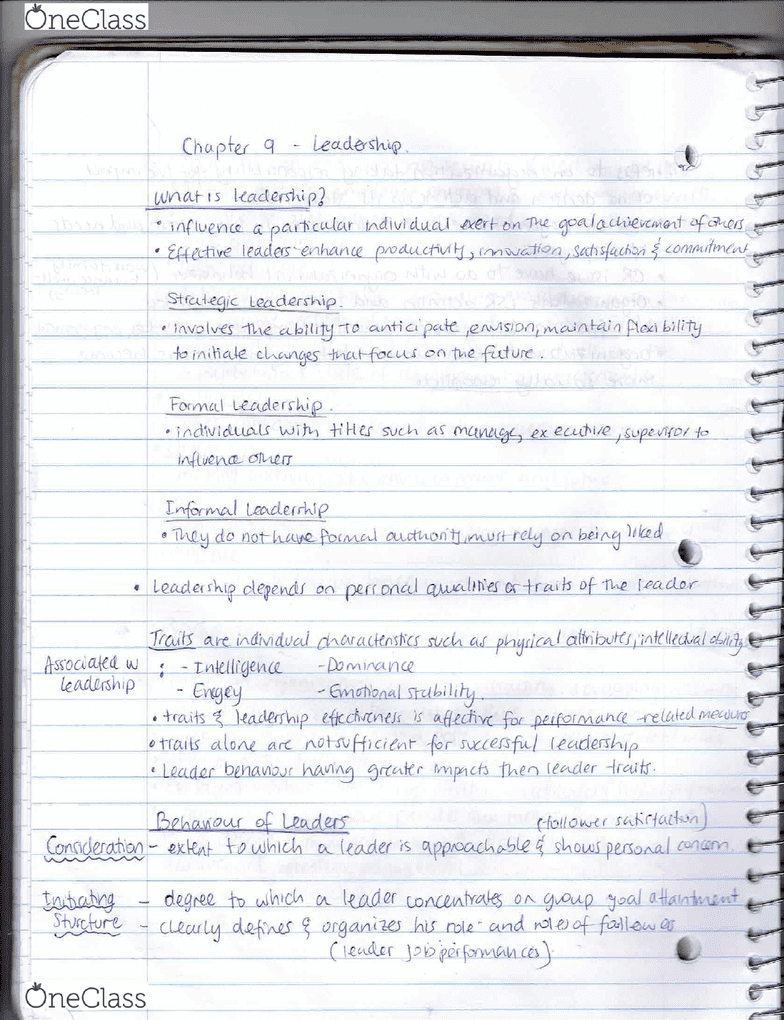 OneClass
Chapter 9 - Leadership.
What is leadership?
• influence a particular individual exert on the goal achievement of others
• Effective leaders enhance productivity, innovation, satisfaction & commitment
Strategic Leadership.
• involves the ability to anticipate, envision, maintain flexibility
to initiate changes that focus on the future.
Formal Leadership.
• individuals with titles such as manage, executive, supervisor to
influence others
Informal Leadership
• They do not have formal authority, must rely on being liked
• Leadership depends on personal qualities or traits of the leader
Traits are individual characteristics such as physical attributes, intellectual ability
Associated w : - Intelligence - Dominance
leadership - Enegey - Emotional stability.
• traits & leadership effectiveness is affective for performance-related measures
• traits alone are not sufficient for successful leadership
• Leader behaviour having greater impacts then leader traits.
Behaviour of Leaders (follower satisfaction)
Consideration - extent to which a leader is approachable & shows personal concern.
Initiating - degree to which a leader concentrates on group goal attainment
Sturcture - clearly defines & organizes his role and roles of followers
(leader job performances).
OneClass